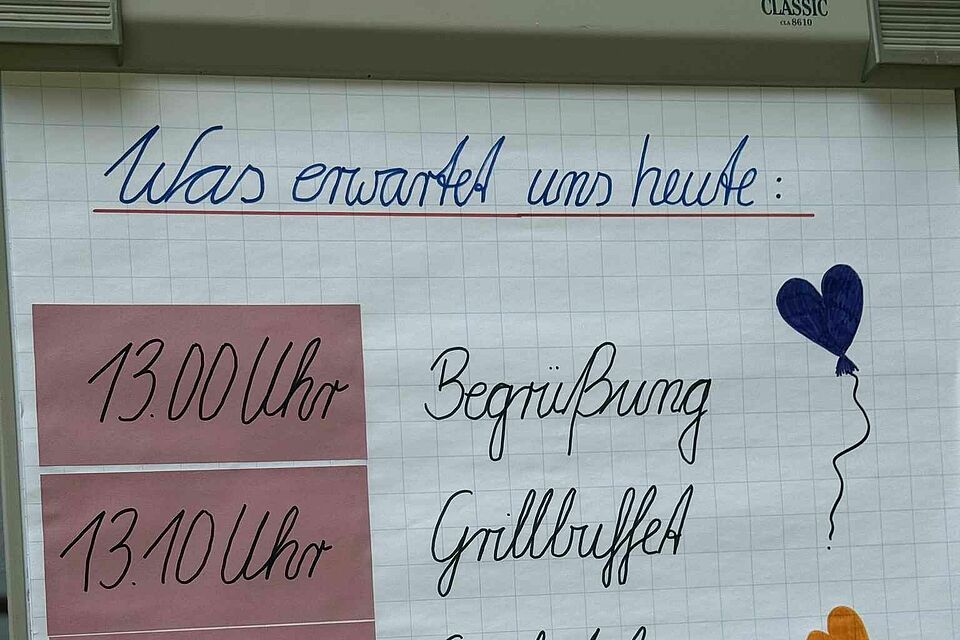 CLASSIC
CLA 8610
Was erwartet uns heute:
13.00 Uhr Begrüßung
13.10 Uhr Grillbuffet